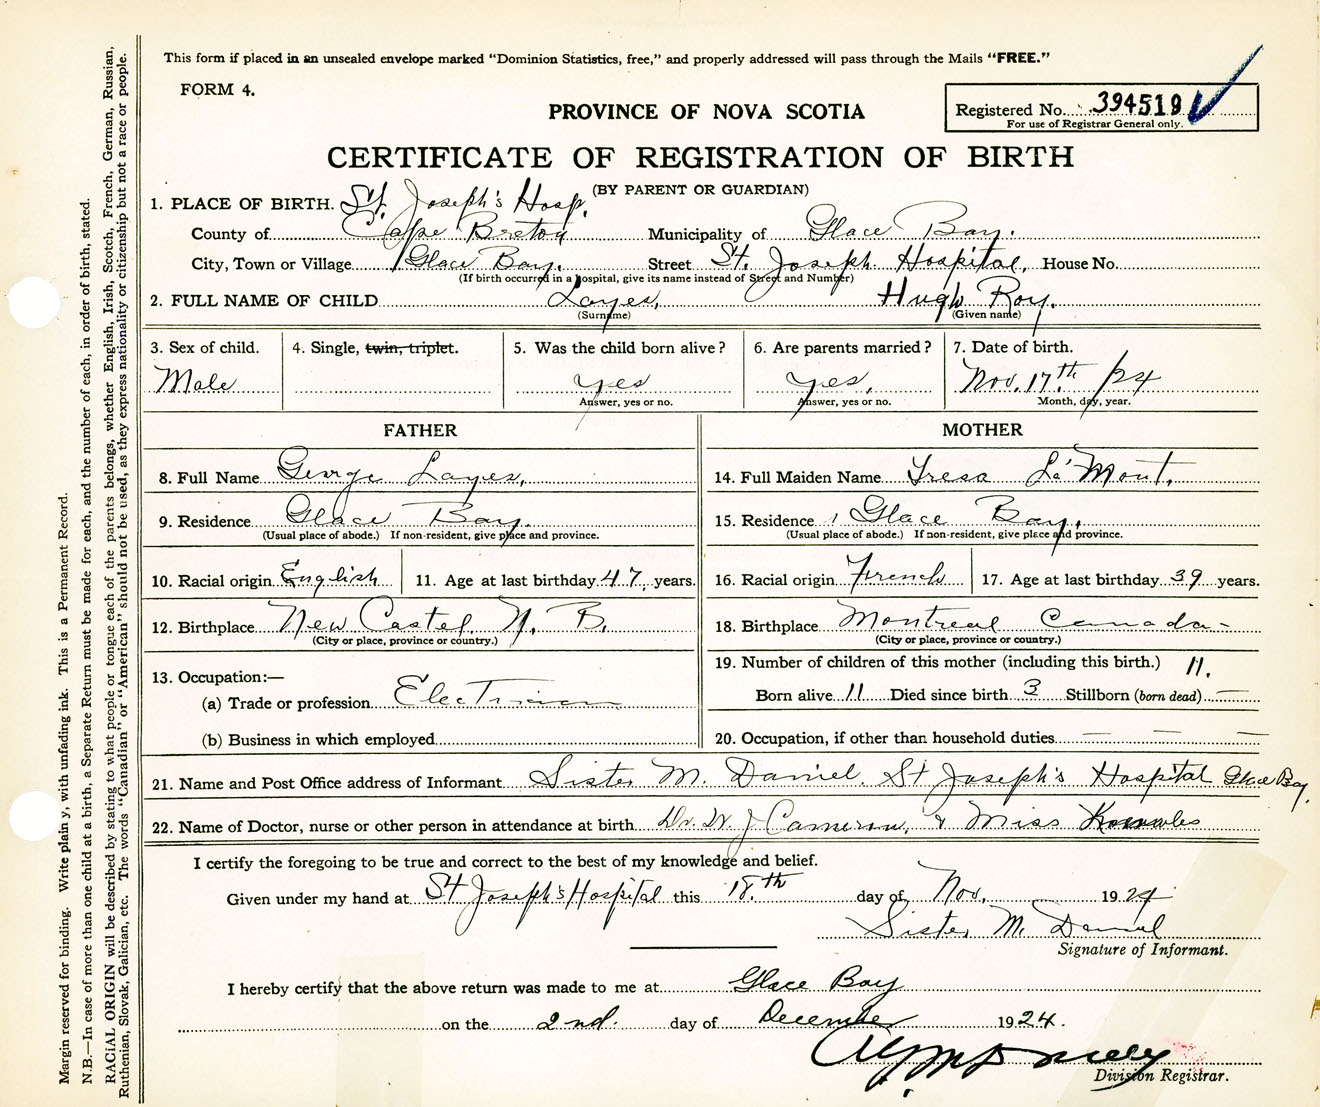 This form if placed in an unsealed envelope marked "Dominion Statistics, free," and properly addressed will pass through the Mails "FREE."
FORM 4.
PROVINCE OF NOVA SCOTIA
Registered No. 394519
For use of Registrar General only.
CERTIFICATE OF REGISTRATION OF BIRTH
(BY PARENT OR GUARDIAN)
1. PLACE OF BIRTH. St. Joseph's Hosp.
County of Cape Breton Municipality of Glace Bay.
City, Town or Village Glace Bay. Street St. Joseph Hospital, House No.
(If birth occurred in a hospital, give its name instead of Street and Number)
2. FULL NAME OF CHILD Layes, Hugh Roy.
(Surname) (Given name)
3. Sex of child. 4. Single, twin, triplet. 5. Was the child born alive? 6. Are parents married? 7. Date of birth.
Male yes yes. Nov. 17th /24
Answer, yes or no. Answer, yes or no. Month, day, year.
FATHER MOTHER
8. Full Name George Layes, 14. Full Maiden Name Tresa La'Mont.
9. Residence Glace Bay. 15. Residence Glace Bay.
(Usual place of abode.) If non-resident, give place and province. (Usual place of abode.) If non-resident, give place and province.
10. Racial origin English 11. Age at last birthday 47 years. 16. Racial origin French 17. Age at last birthday 39 years.
12. Birthplace New Castel N. B. 18. Birthplace Montreal Canada-
(City or place, province or country.) (City or place, province or country.)
13. Occupation:— 19. Number of children of this mother (including this birth.) 11.
(a) Trade or profession Electrician Born alive 11 Died since birth 3 Stillborn (born dead) —
(b) Business in which employed 20. Occupation, if other than household duties — — —
21. Name and Post Office address of Informant Sister M. Daniel. St Joseph's Hospital Glace Bay.
22. Name of Doctor, nurse or other person in attendance at birth Dr. W. J Cameron, & Miss
I certify the foregoing to be true and correct to the best of my knowledge and belief.
Given under my hand at St Joseph's Hospital this 18.th day of Nov. 1924
Sister M. Daniel
Signature of Informant.
I hereby certify that the above return was made to me at Glace Bay
on the 2nd. day of December 1924.
Division Registrar.
Margin reserved for binding. Write plain y, with unfading ink. This is a Permanent Record.
N.B.—In case of more than one child at a birth, a Separate Return must be made for each, and the number of each, in order of birth, stated.
RACIAL ORIGIN will be described by stating to what people or tongue each of the parents belongs, whether English, Irish, Scotch, French, German, Russian,
Ruthenian, Slovak, Galician, etc. The words "Canadian" or "American" should not be used, as they express nationality or citizenship but not a race or people.